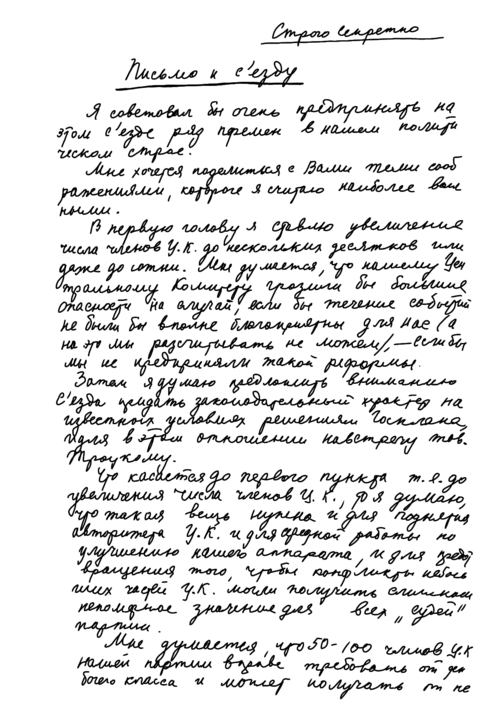 Строго секретно
Письмо к с'езду
Я советовал бы очень предпринять на
этом с'езде ряд перемен в нашем полити
ческом строе.
Мне хочется поделиться с Вами теми сооб
ражениями, которые я считаю наиболее важ
ными.
В первую голову я ставлю увеличение
числа членов Ц.К. до нескольких десятков или
даже до сотни. Мне думается, что нашему Цен
тральному Комитету грозили бы большие
опасности на случай, если бы течение событий
не были бы вполне благоприятны для нас (а
на это мы рассчитывать не можем), – если бы
мы не предприняли такой реформы.
Затем я думаю предложить вниманию
с'езда придать законодательный характер на
известных условиях решениям Госплана,
идя в этом отношении навстречу тов.
Троцкому.
Что касается до первого пункта т.е. до
увеличения числа членов Ц.К., то я думаю,
что такая вещь нужна и для поднятия
авторитета Ц.К. и для серьезной работы по
улучшению нашего аппарата, и для предот
вращения того, чтобы конфликты неболь
ших частей Ц.К. могли получить слишком
непомерное значение для всех „судей"
партии.
Мне думается, что 50-100 членов Ц.К
нашей партии вправе требовать от ра
бочего класса и может получить от не